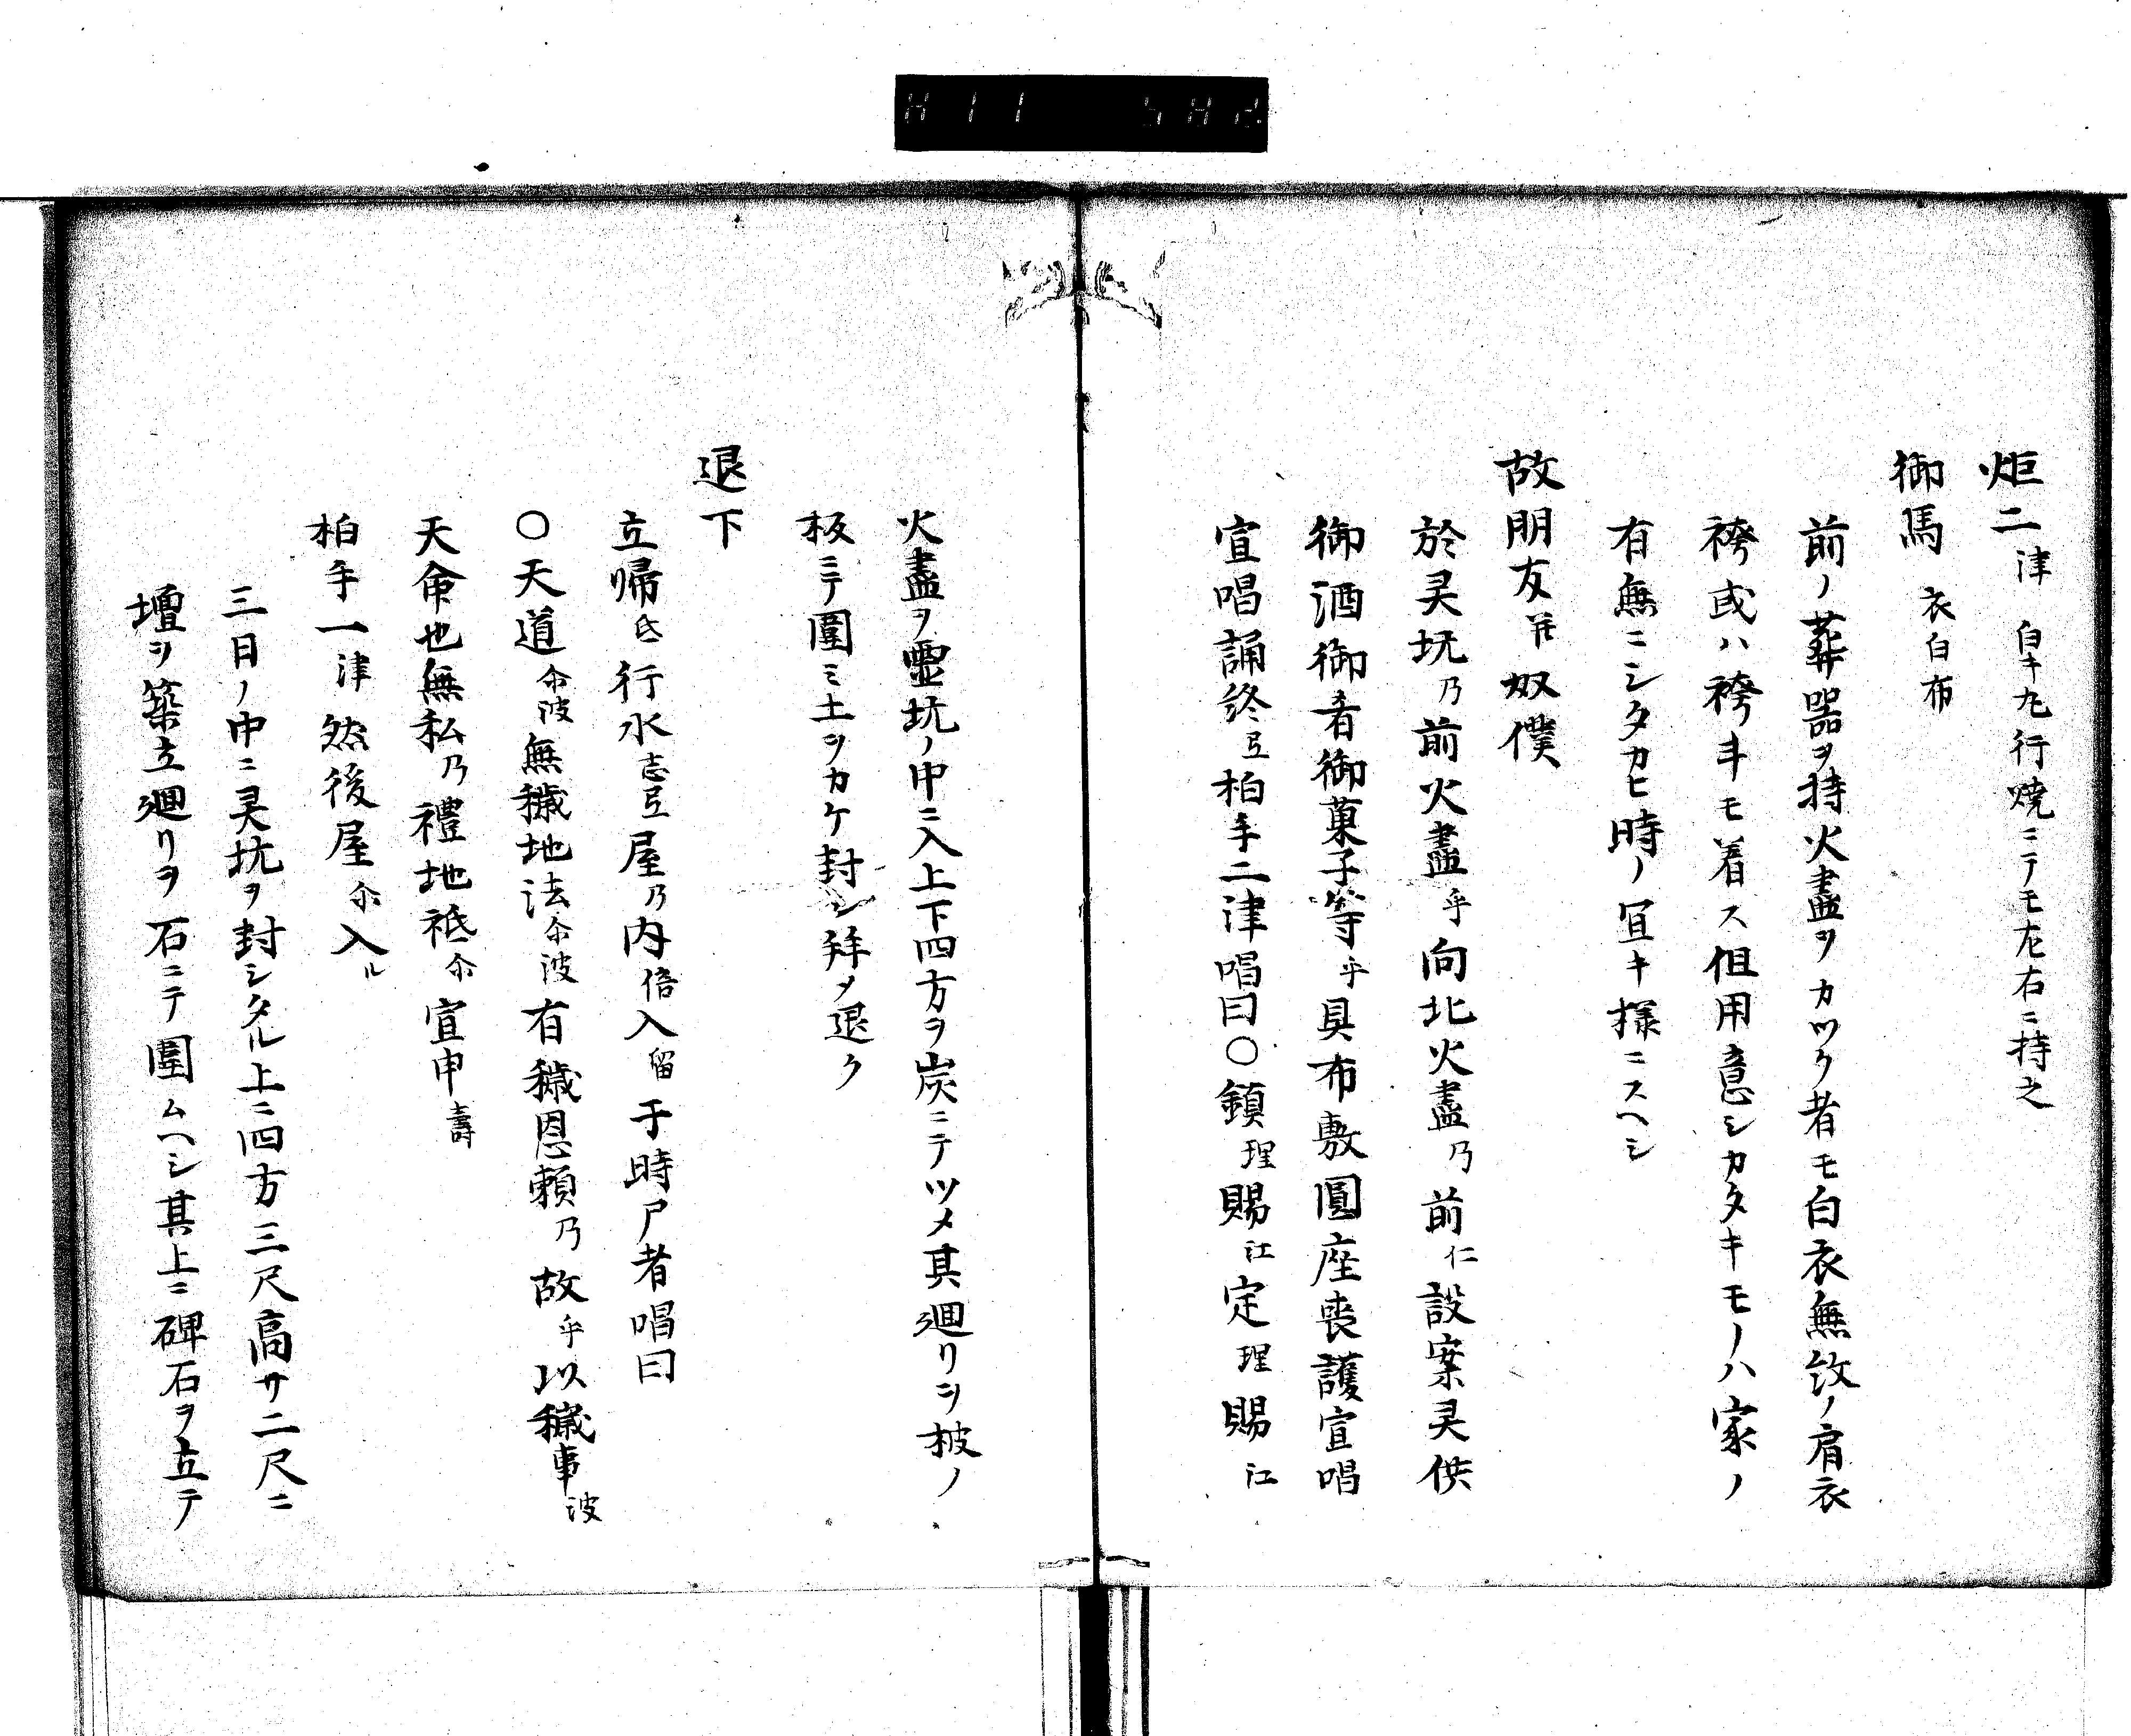 炬二津 白キ九行焼ニテモ左右ニ持之
御馬 衣白布
前ノ葬器ヲ持火盡ヲカツク者モ白衣無紋ノ肩衣
袴或ハ袴斗モ着ス但用意シカタキモノハ家ノ
有無ニシタカヒ時ノ宜キ様ニスヘシ
故朋友並奴僕
於灵坑乃前火盡乎向北火盡乃前仁設案灵供
御酒御肴御菓子等乎具布敷圓座喪護宣唱
宣唱誦終弖柏手二津唱曰○鎮理賜江定理賜江
火盡ヲ靈坑ノ中ニ入上下四方ヲ炭ニテツメ其廻リヲ板ノ
板ニテ圍ミ土ヲカケ封シ拜メ退ク
退下
立帰氐行水志弖屋乃内倍入留于時尸者唱曰
○天道尓波無穢地法尓波有穢恩頼乃故乎以穢事波
天命也無私乃禮地祇尓宣申壽
柏手一津然後屋尓入ル
三日ノ中ニ灵坑ヲ封シタル上ニ四方三尺高サ二尺ニ
壇ヲ築立廻リヲ石ニテ圍ムヘシ其上ニ碑石ヲ立テ